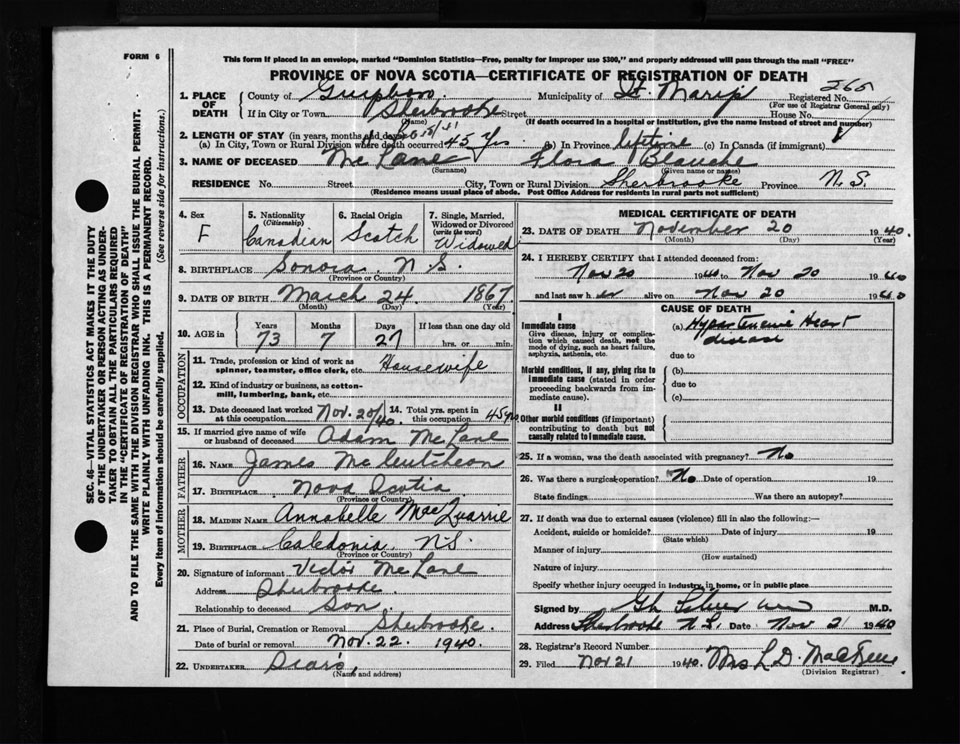 FORM 6
This form if placed in an envelope, marked "Dominion Statistics—Free, penalty for improper use $300," and properly addressed will pass through the mail "FREE"
PROVINCE OF NOVA SCOTIA—CERTIFICATE OF REGISTRATION OF DEATH
1. PLACE OF DEATH County of Guysboro Municipality of St. Mary's Registered No. 265
(For use of Registrar General only)
If in City or Town Sherbrooke Street House No.
(Name) (If death occurred in a hospital or institution, give the name instead of street and number)
2. LENGTH OF STAY (in years, months and days)
(a) In City, Town or Rural Division where death occurred 45 yrs (b) In Province lifetime (c) In Canada (if immigrant)
3. NAME OF DECEASED McLane Flora Blanche
(Surname) (Given name or names)
RESIDENCE No. Street City, Town or Rural Division Sherbrooke Province N.S.
(Residence means usual place of abode. Post Office Address for Residents in rural parts not sufficient)
4. Sex F
5. Nationality (Citizenship) Canadian
6. Racial Origin Scotch
7. Single, Married, Widowed or Divorced (write the word) Widowed
8. BIRTHPLACE Sonora N.S.
(Province or Country)
9. DATE OF BIRTH March 24 1867
(Month) (Day) (Year)
10. AGE in Years 73 Months 7 Days 27 If less than one day old hrs. or min.
OCCUPATION
11. Trade, profession or kind of work as spinner, teamster, office clerk, etc. Housewife
12. Kind of industry or business, as cotton-mill, lumbering, bank, etc.
13. Date deceased last worked at this occupation Nov. 20/40
14. Total yrs. spent in this occupation 45 yrs
15. If married give name of wife or husband of deceased Adam McLane
FATHER
16. NAME James McCutcheon
17. BIRTHPLACE Nova Scotia
(Province or Country)
MOTHER
18. MAIDEN NAME Annabelle MacQuarrie
19. BIRTHPLACE Caledonia N.S.
(Province or Country)
20. Signature of informant Victor McLane
Address Sherbrooke
Relationship to deceased Son
21. Place of Burial, Cremation or Removal Sherbrooke
Date of burial or removal Nov. 22. 1940.
22. UNDERTAKER
(Name and address)
MEDICAL CERTIFICATE OF DEATH
23. DATE OF DEATH November 20 1940.
(Month) (Day) (Year)
24. I HEREBY CERTIFY that I attended deceased from:
Nov 20 1940 to Nov 20 1940
and last saw her alive on Nov 20 1940
CAUSE OF DEATH
I
Immediate cause
Give disease, injury or complication which caused death, not the mode of dying, such as heart failure, asphyxia, asthenia, etc.
(a) Hypertensive Heart disease
due to
Morbid conditions, if any, giving rise to immediate cause (stated in order proceeding backwards from immediate cause).
(b)
due to
(c)
II
Other morbid conditions (if important) contributing to death but not causally related to immediate cause.
25. If a woman, was the death associated with pregnancy? No
26. Was there a surgical operation? No Date of operation 19
State findings Was there an autopsy?
27. If death was due to external causes (violence) fill in also the following:—
Accident, suicide or homicide? Date of injury 19
(State which)
Manner of injury
(How sustained)
Nature of injury
Specify whether injury occurred in industry, in home, or in public place
Signed by M.D.
Address Sherbrooke N.S. Date Nov 21 1940
28. Registrar's Record Number
29. Filed Nov 21 1940. Mrs L. D.
(Division Registrar)
SEC. 46—VITAL STATISTICS ACT MAKES IT THE DUTY
OF THE UNDERTAKER OR PERSON ACTING AS UNDER-
TAKER TO OBTAIN ALL THE PARTICULARS REQUIRED
IN THE "CERTIFICATE OF REGISTRATION OF DEATH"
AND TO FILE THE SAME WITH THE DIVISION REGISTRAR WHO SHALL ISSUE THE BURIAL PERMIT.
WRITE PLAINLY WITH UNFADING INK. THIS IS A PERMANENT RECORD.
Every item of information should be carefully supplied. (See reverse side for instructions.)